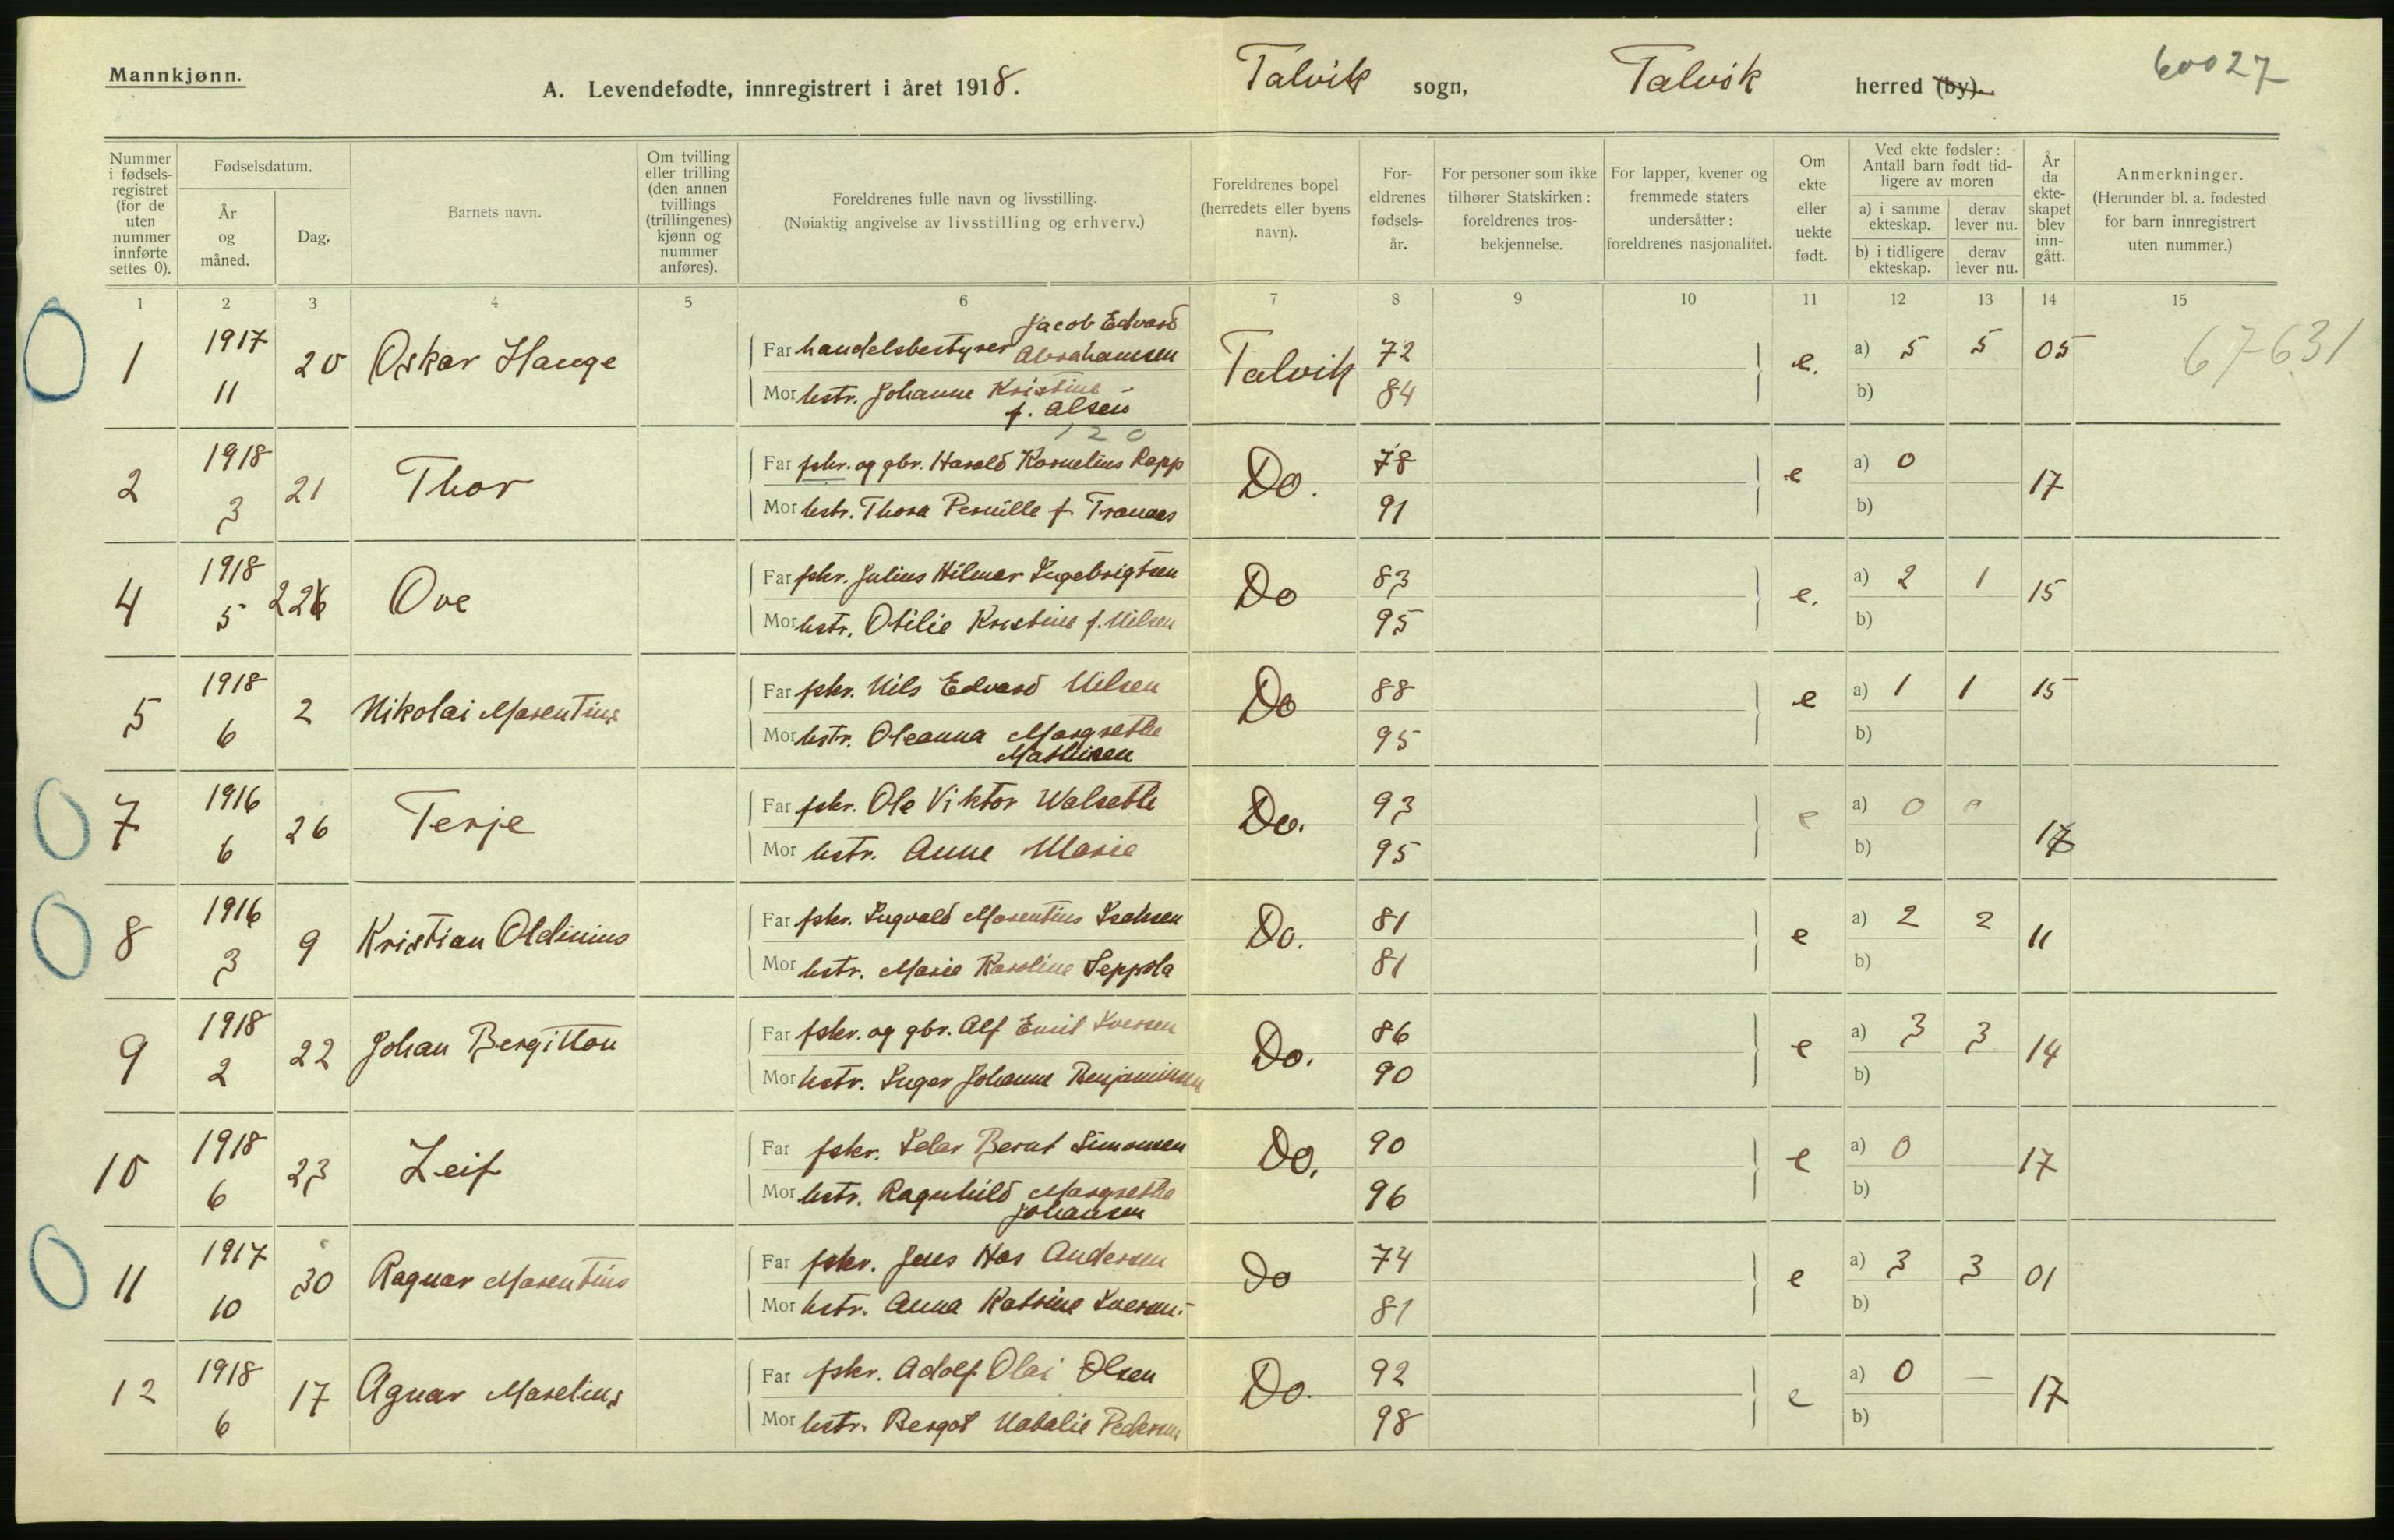 Mannkjønn.
A. Levendefødte, innregistrert i året 1918.
Talvik sogn, Talvik herred (by).
60027
Nummer i fødsels-registret (for de uten nummer innførte settes 0).
Fødselsdatum.
År og måned.
Dag.
Barnets navn.
Om tvilling eller trilling (den annen tvillings (trillingenes) kjønn og nummer anføres).
Foreldrenes fulle navn og livsstilling.
(Nøiaktig angivelse av livsstilling og erhverv.)
Foreldrenes bopel (herredets eller byens navn).
For-eldrenes fødsels-år.
For personer som ikke tilhører Statskirken: foreldrenes tros-bekjennelse.
For lapper, kvener og fremmede staters undersåtter: foreldrenes nasjonalitet.
Om ekte eller uekte født.
Ved ekte fødsler: Antall barn født tid-ligere av moren
a) i samme ekteskap. derav lever nu.
b) i tidligere ekteskap. derav lever nu.
År da ekte-skapet blev inn-gått.
Anmerkninger.
(Herunder bl. a. fødested for barn innregistrert uten nummer.)
1 2 3 4 5 6 7 8 9 10 11 12 13 14 15
1 1917 11 20 Oskar Hauge
Far handelsbestyrer Jacob Edvard Abrahamsen Talvik 72 e. a) 5 5 05 67631
Mor hstr. Johanne Kristine f. Olsen 84 b)
120
2 1918 3 21 Thor
Far fskr. og gbr. Harald Kornelius Rapp Do. 78 e a) 0 17
Mor hstr. Thora Pernille f. Tranaas 91 b)
4 1918 5 226 Ove
Far fskr. Julius Hilmar Ingebrigtsen Do 83 e. a) 2 1 15
Mor hstr. Otilie Kristine f. Nilsen 95 b)
5 1918 6 2 Nikolai Marentius
Far fskr. Nils Edvard Nilsen Do 88 e a) 1 1 15
Mor hstr. Oleanna Margrethe Mathisen 95 b)
7 1916 6 26 Terje
Far fskr. Ole Viktor Walseth Do. 93 e a) 0 0 17
Mor hstr. Anne Marie 95 b)
8 1916 3 9 Kristian Oldinius
Far fskr. Ingvald Marentius Isaksen Do. 81 e a) 2 2 11
Mor hstr. Marie Karoline Seppola 81 b)
9 1918 2 22 Johan Bergitton
Far fskr. og gbr. Alf Emil Iversen Do. 86 e a) 3 3 14
Mor hstr. Inger Johanne Benjaminsen 90 b)
10 1918 6 23 Leif
Far fskr. Peder Berut Simonsen Do. 90 e a) 0 17
Mor hstr. Ragnhild Margrethe Johansen 96 b)
11 1917 10 30 Ragnar Marentius
Far fskr. Jens Has Andersen Do 74 e a) 3 3 01
Mor hstr. Anna Katrine Iversen 81 b)
12 1918 6 17 Agnar Marelius
Far fskr. Adolf Olai Olsen Do. 92 e a) 0 — 17
Mor hstr. Bergot Natalie Pedersen 98 b)